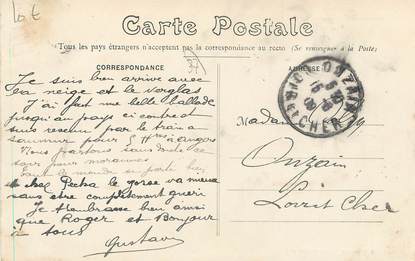 10 €
37
Carte Postale
(Tous les pays étrangers n'acceptent pas la correspondance au recto (Se renseigner à la Poste)
CORRESPONDANCE
ADRESSE
Je suis bien arrivé avec
la neige et le verglas
J'ai fait une belle ballade
jusqu'au pays ci contre
suis revenu par le train à
saumur pour 5 Hres à angers
Nous partons
pour morannes
Tout le monde se porte bien
chez le gosse va mieux
sans être complètement guéri
Je t'embrasse bien ainsi
que Roger et Bonjour
à tous
Gustave
ONZAIN
LOIR ET CHER
Madame
Onzain
Loir et Cher